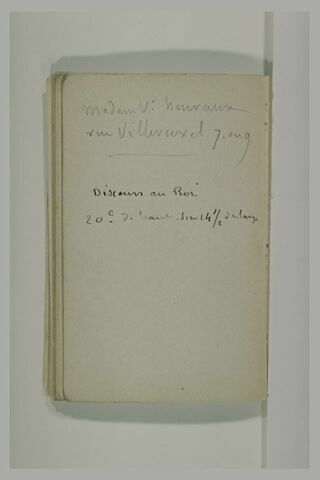 Madame Ve
rue Villersexel 7.
Discours au Roi
20c de haut. sur 14 1/2 de large